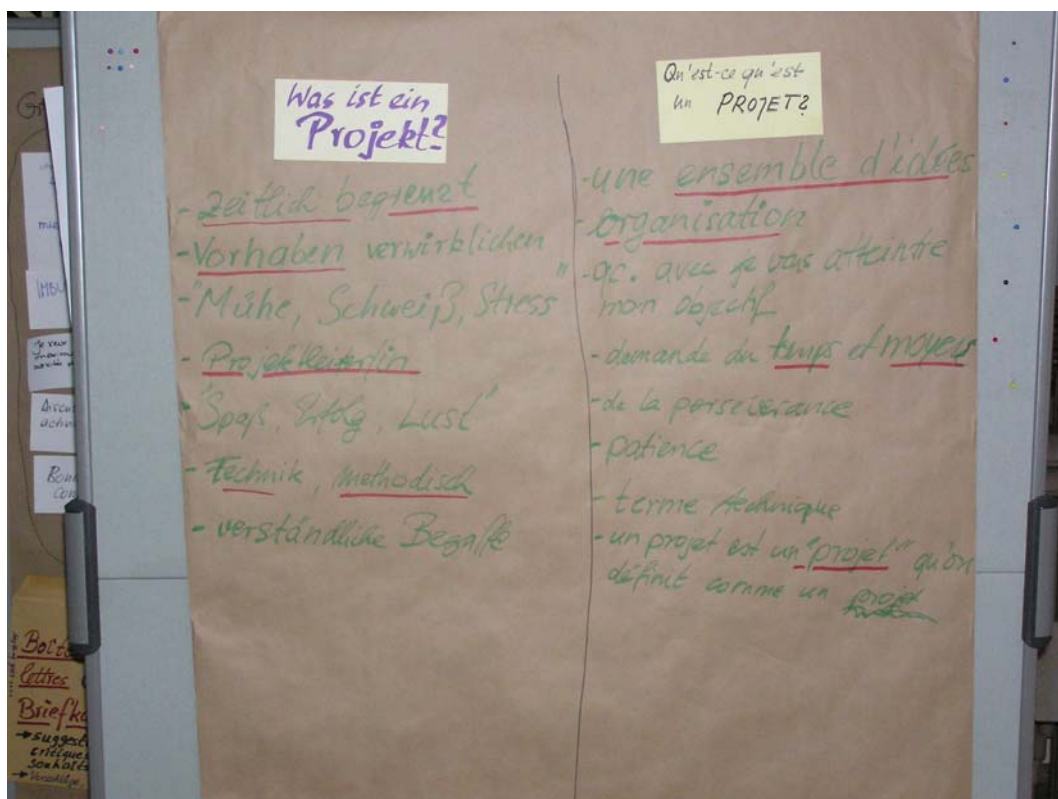 Was ist ein
Projekt?
- zeitlich begrenzt
- Vorhaben verwirklichen
- "Mühe, Schweiß, Stress"
- Projektleiter/in
- "Spaß, Erfolg, Lust"
- Technik, methodisch
- verständliche Begriffe
Qu'est-ce qu'est
un PROJET?
- une ensemble d'idées
- organisation
- qc. avec je vais atteintre
mon objectif
- demande du temps et moyens
- de la perseverance
- patience
- terme technique
- un projet est un "projet" qu'on
définit comme un projet
Boîte
lettres
Briefk
→ suggest
critiques
souhaits
→ Vorschläge